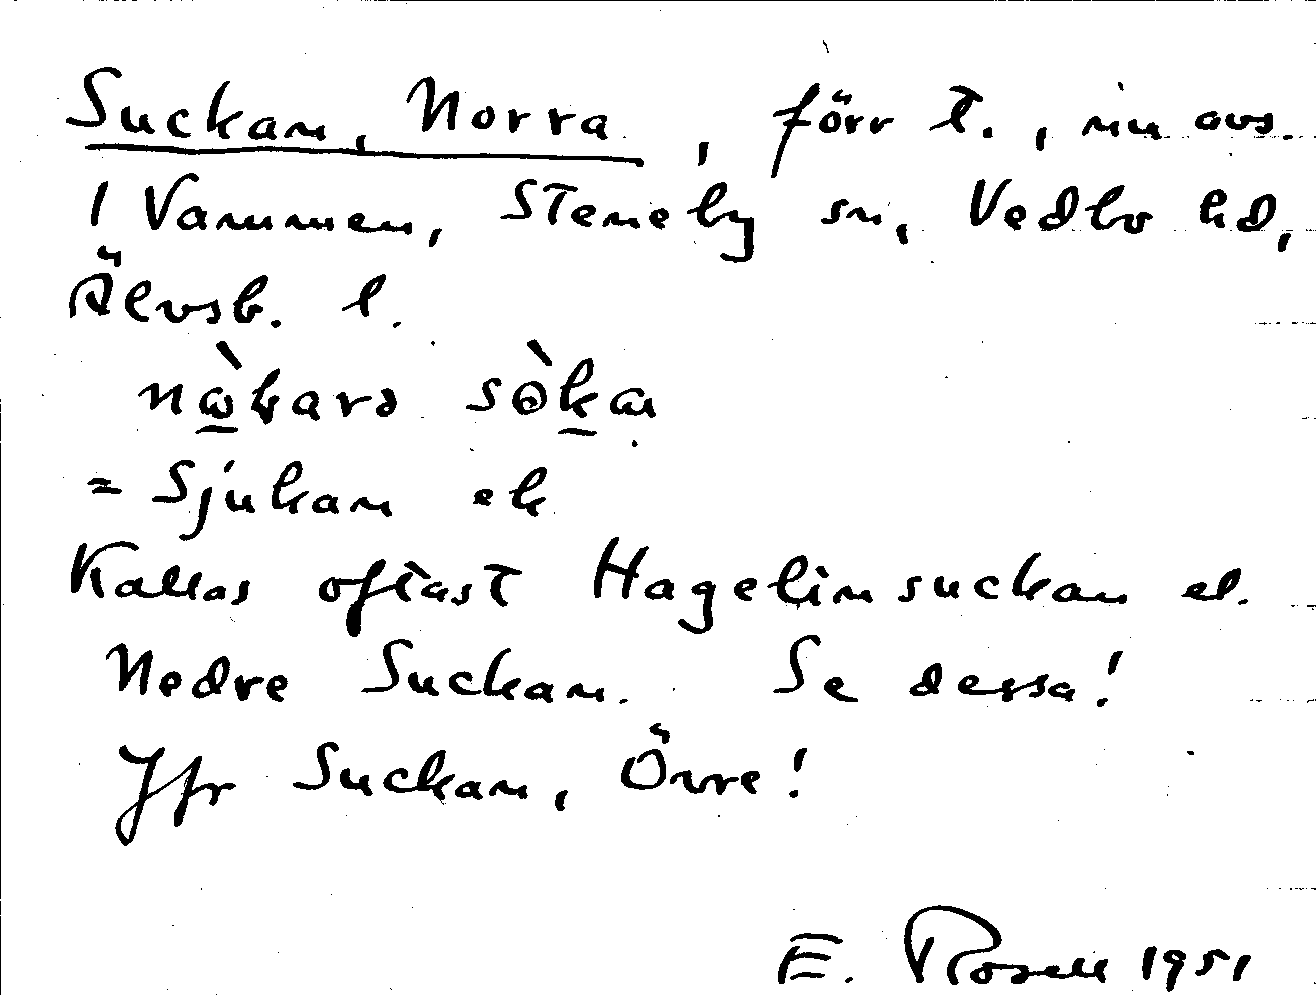 Suckan, Norra, förr t., nu avs.
i Vammen, Steneby sn, Vedbo hd,
Älvsb. l.
nò̱karə sòḵan
= Sjukan ek
Kallas oftast Hagelinsuckan el.
Nedre Suckan. Se dessa!
Jfr Suckan, Övre!
E. Rosell 1951